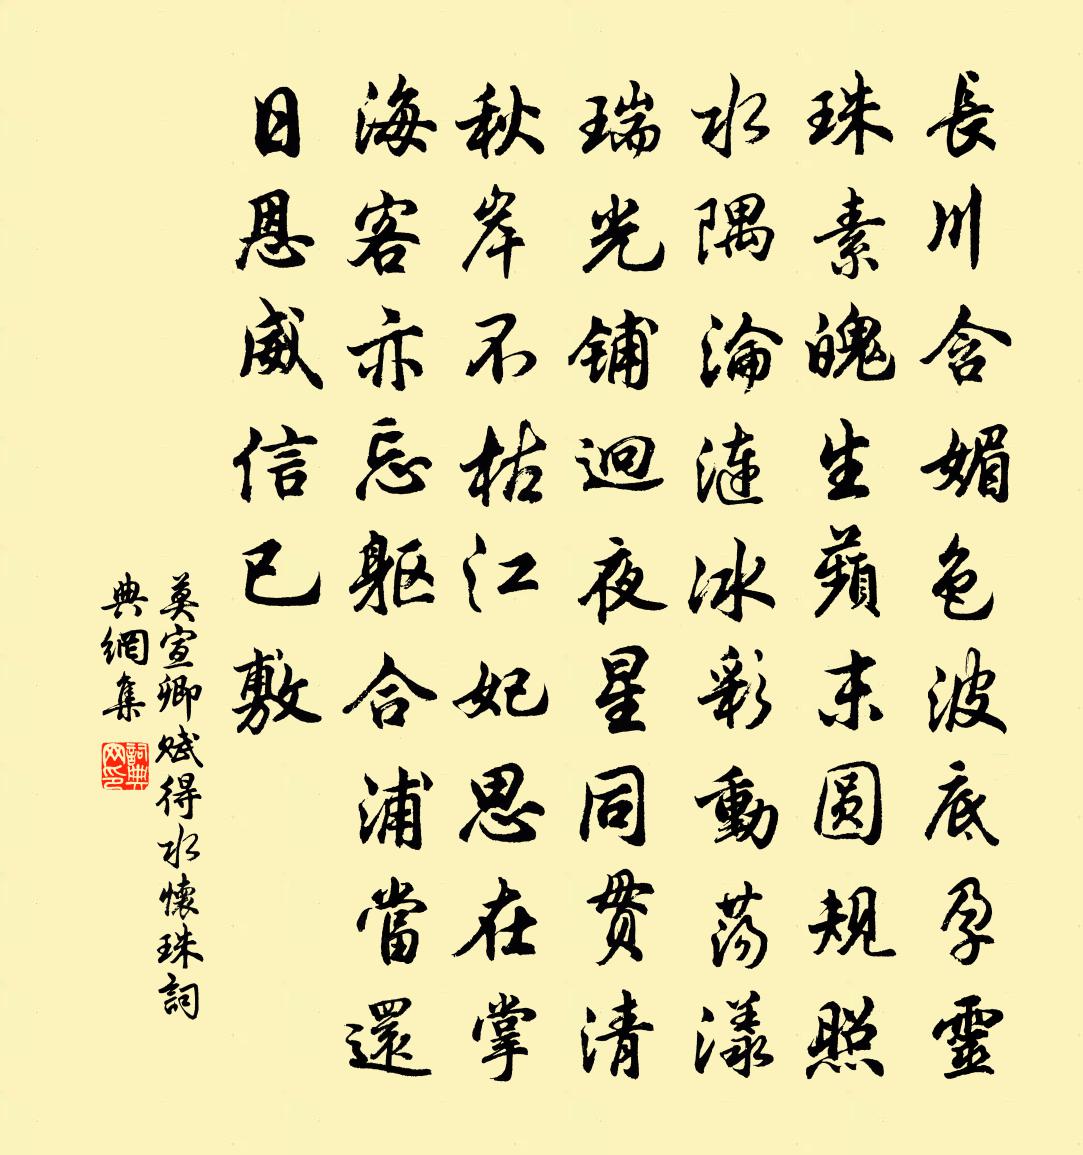 長川含媚色波底孕靈
珠素魄生蘋末圆規照
水隅淪漣冰彩動蕩漾
瑞光鋪迥夜星同貫清
秋岸不枯江妃思在掌
海客亦忘軀合浦當還
日恩威信已敷
莫宣卿賦得水懷珠詞
典網集
詞典網印